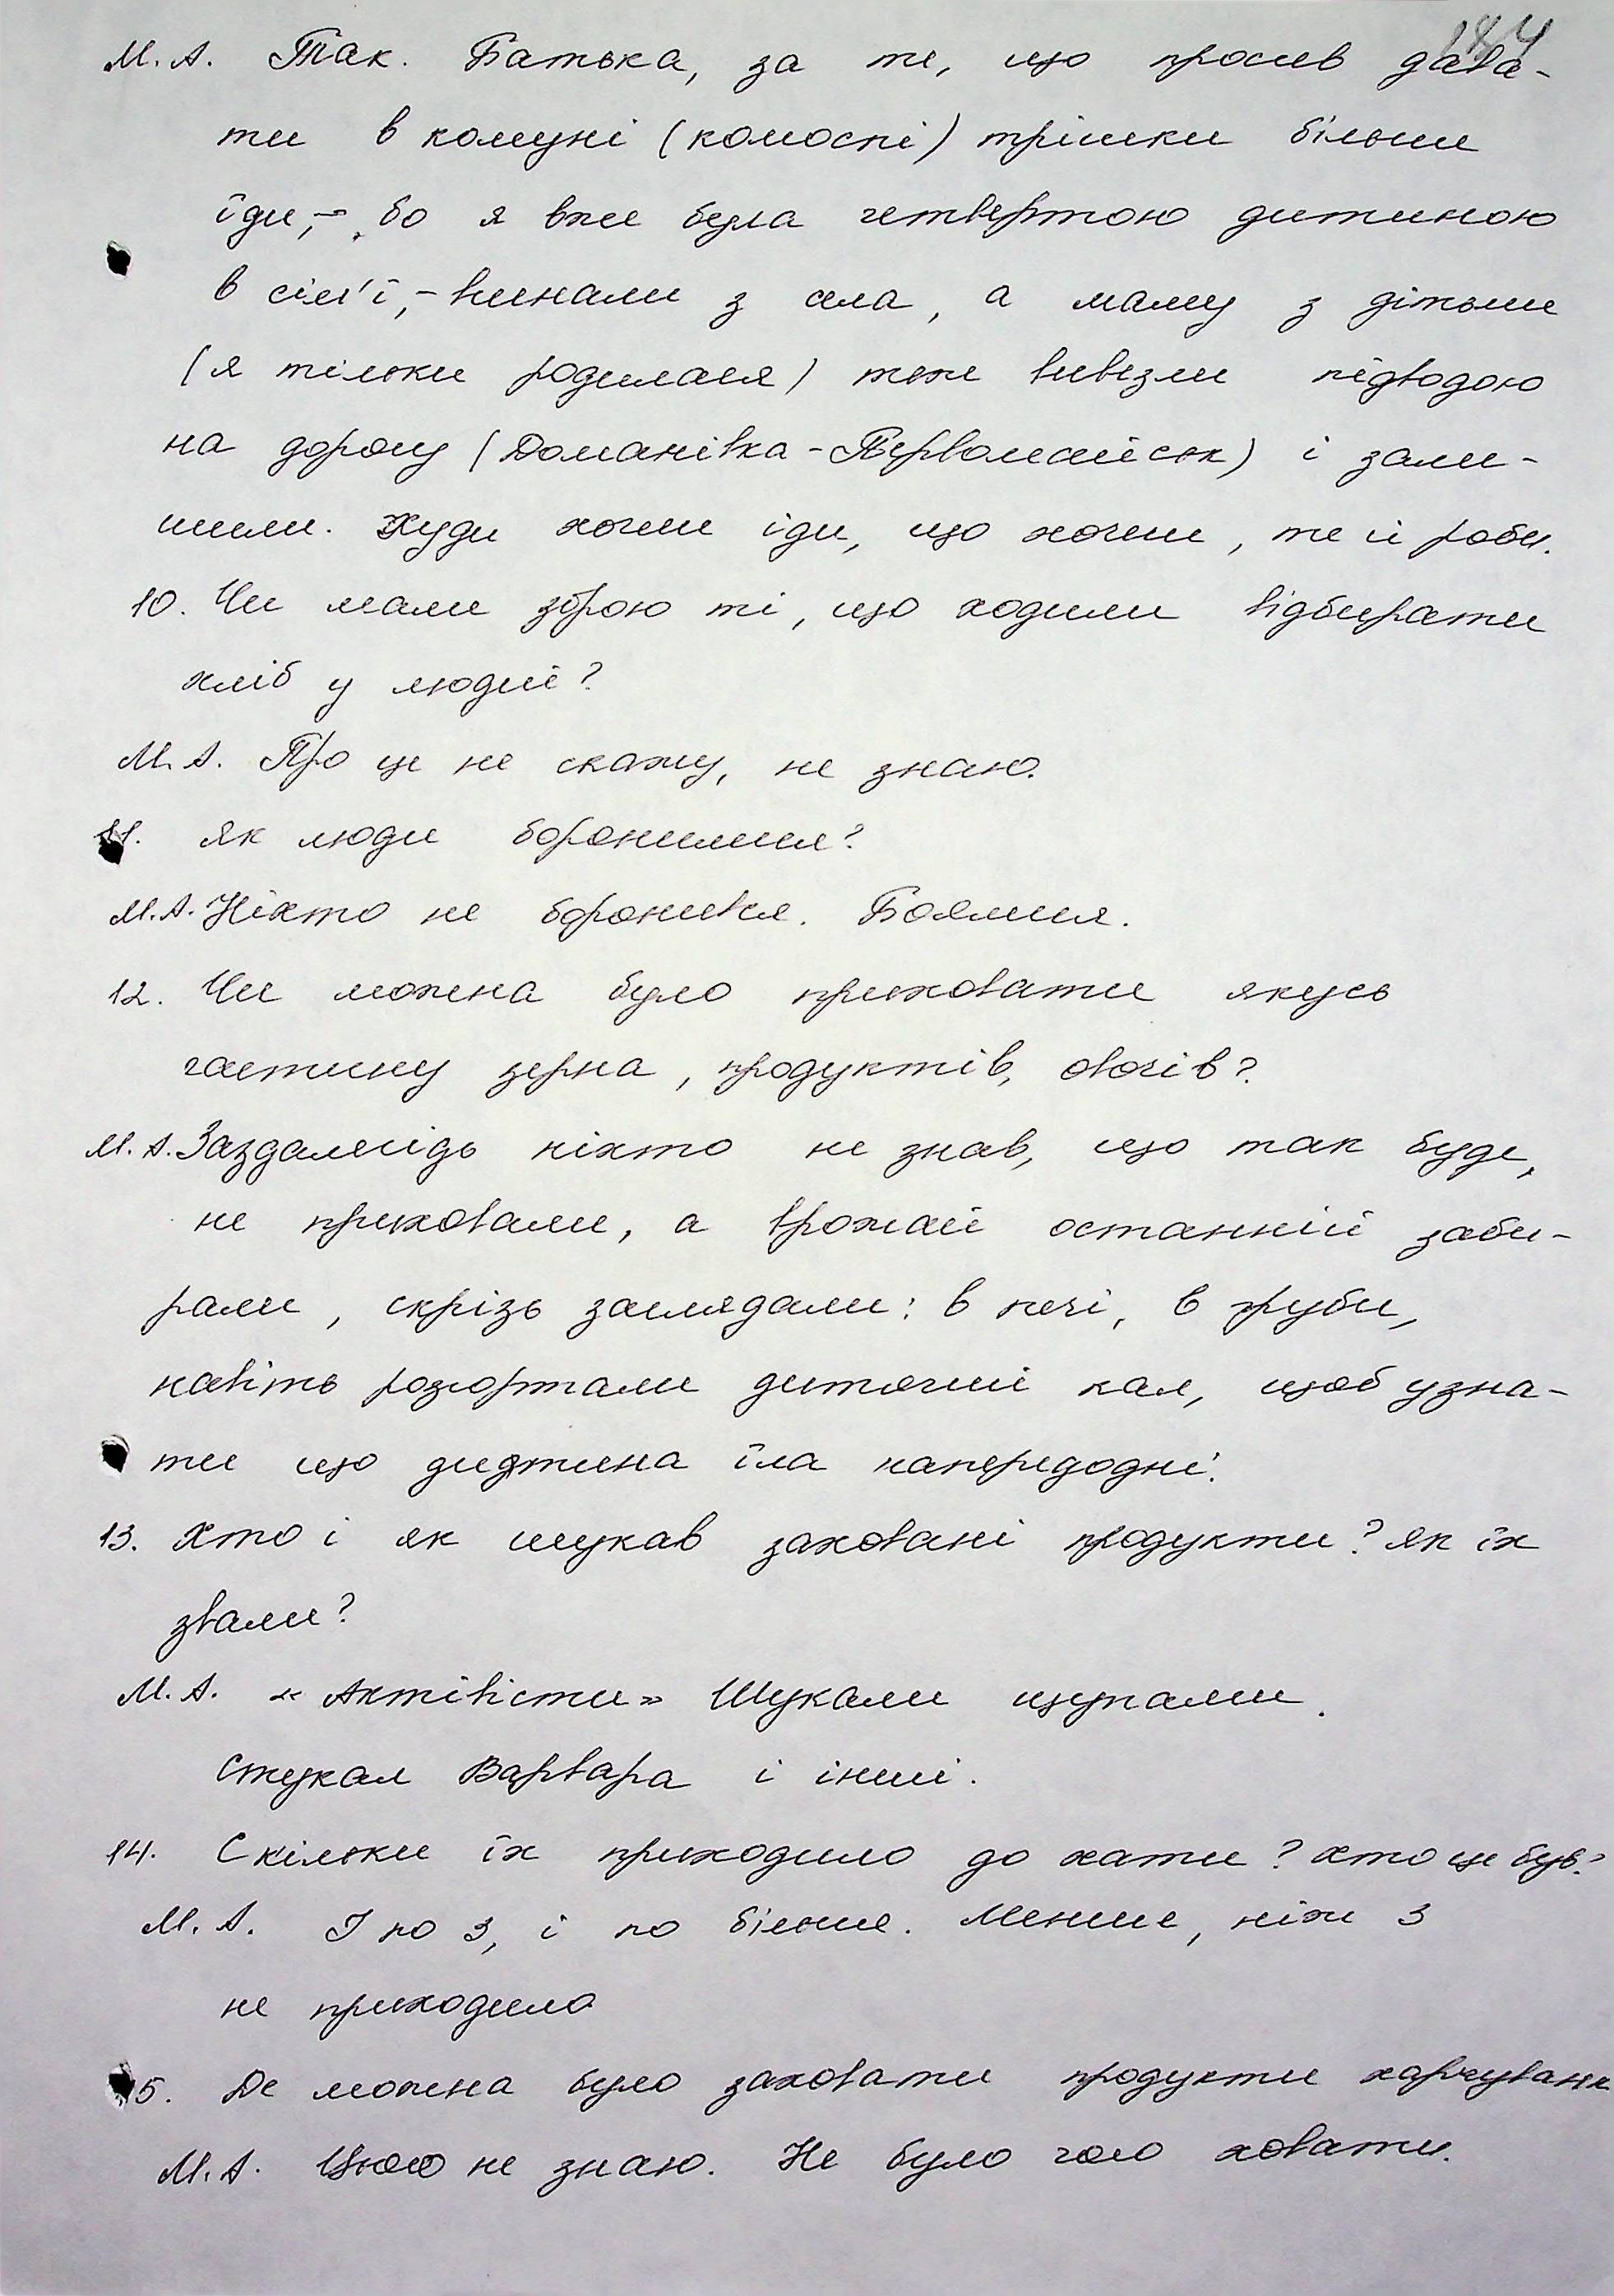 184
М. А. Так. Батька, за те, що просив дава-
ти в комуні (комоспі) трішки більше
їди,- бо я вже була четвертою дитиною
в сім'ї,- вигнали з села, а маму з дітьми
(я тільки родилася) теж вивезли підводою
на дорогу (Доманівка - Первомайськ) і зали-
шили. Куди хочеш іди, що хочеш, те й роби.
10. Чи мали зброю ті, що ходили відбирати
хліб у людей?
М. А. Про це не скажу, не знаю.
11. Як люди боронились?
М. А. Ніхто не боронився. Боялися.
12. Чи можна було приховати якусь
частину зерна, продуктів, овочів?
М. А. Заздалегідь ніхто не знав, що так буде,
не приховали, а врожай останній заби-
рали, скрізь заглядали: в печі, в груби,
навіть розгортали дитячий кал, щоб узна-
ти що дидтина їла напередодні.
13. Хто і як шукав заховані продукти? Як їх
звали?
М. А. «Активісти» Шукали щупами.
Стукал Варвара і інші.
14. Скільки їх приходило до хати? Хто це був?
М. А. І по 3, і по більше. Менше, ніж 3
не приходило
5. Де можна було заховати продукти харчуванн
М. А. Цього не знаю. Не було чого ховати.